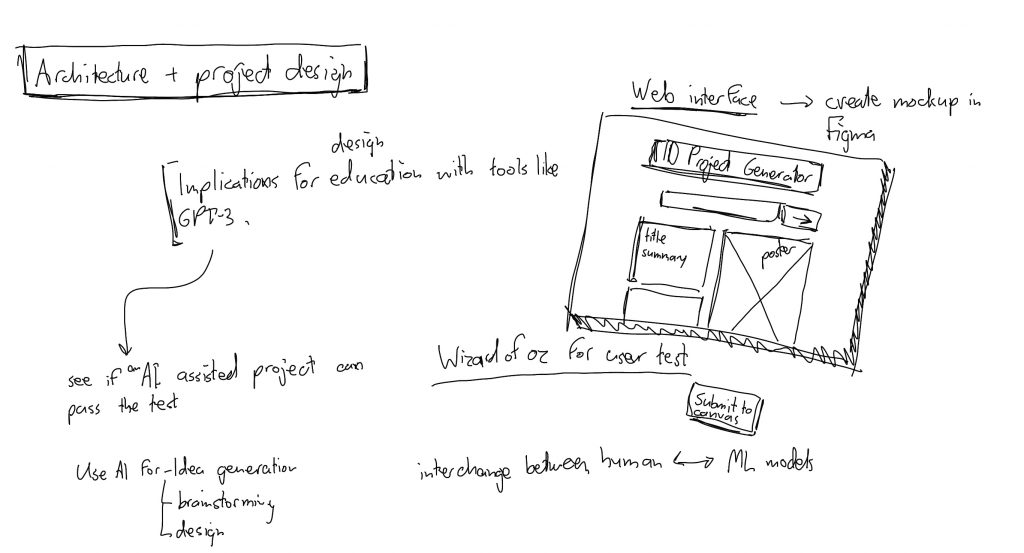 Architecture + project design
design
Implications for education with tools like
GPT-3.
see if an AI assisted project can
pass the test
Use AI for - Idea generation
- brainstorming
- design
Web interface → create mockup in
Figma
Project Generator
→
title
summary
poster
Wizard of oz for user test
Submit to
canvas
interchange between human ↔ ML models